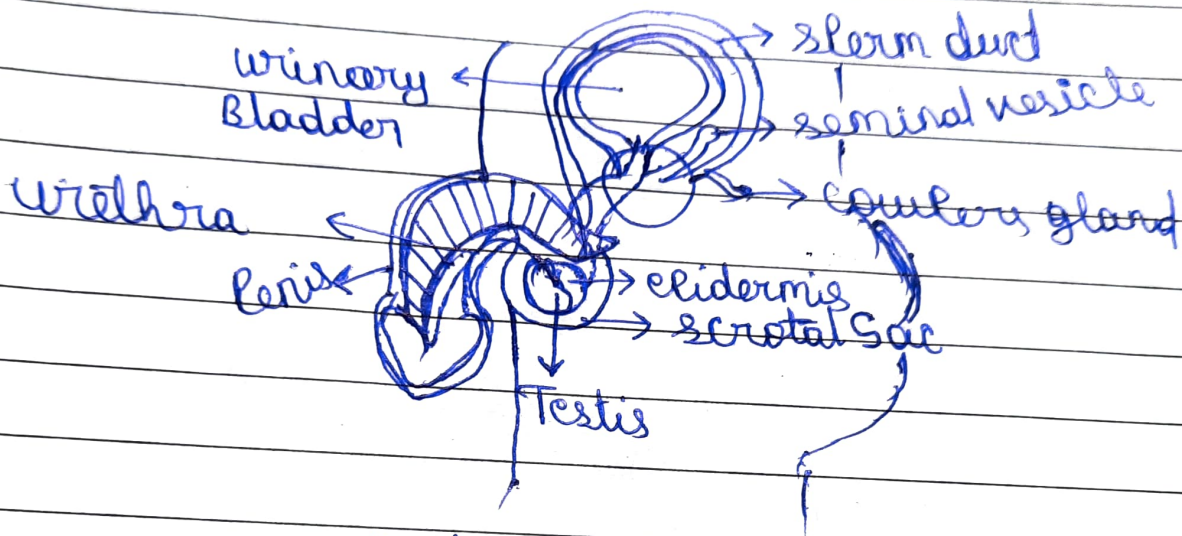 urinary
Bladder
sperm duct
seminal vesicle
urethra
cowlers gland
Penis
epidermis
scrotal Sac
Testis